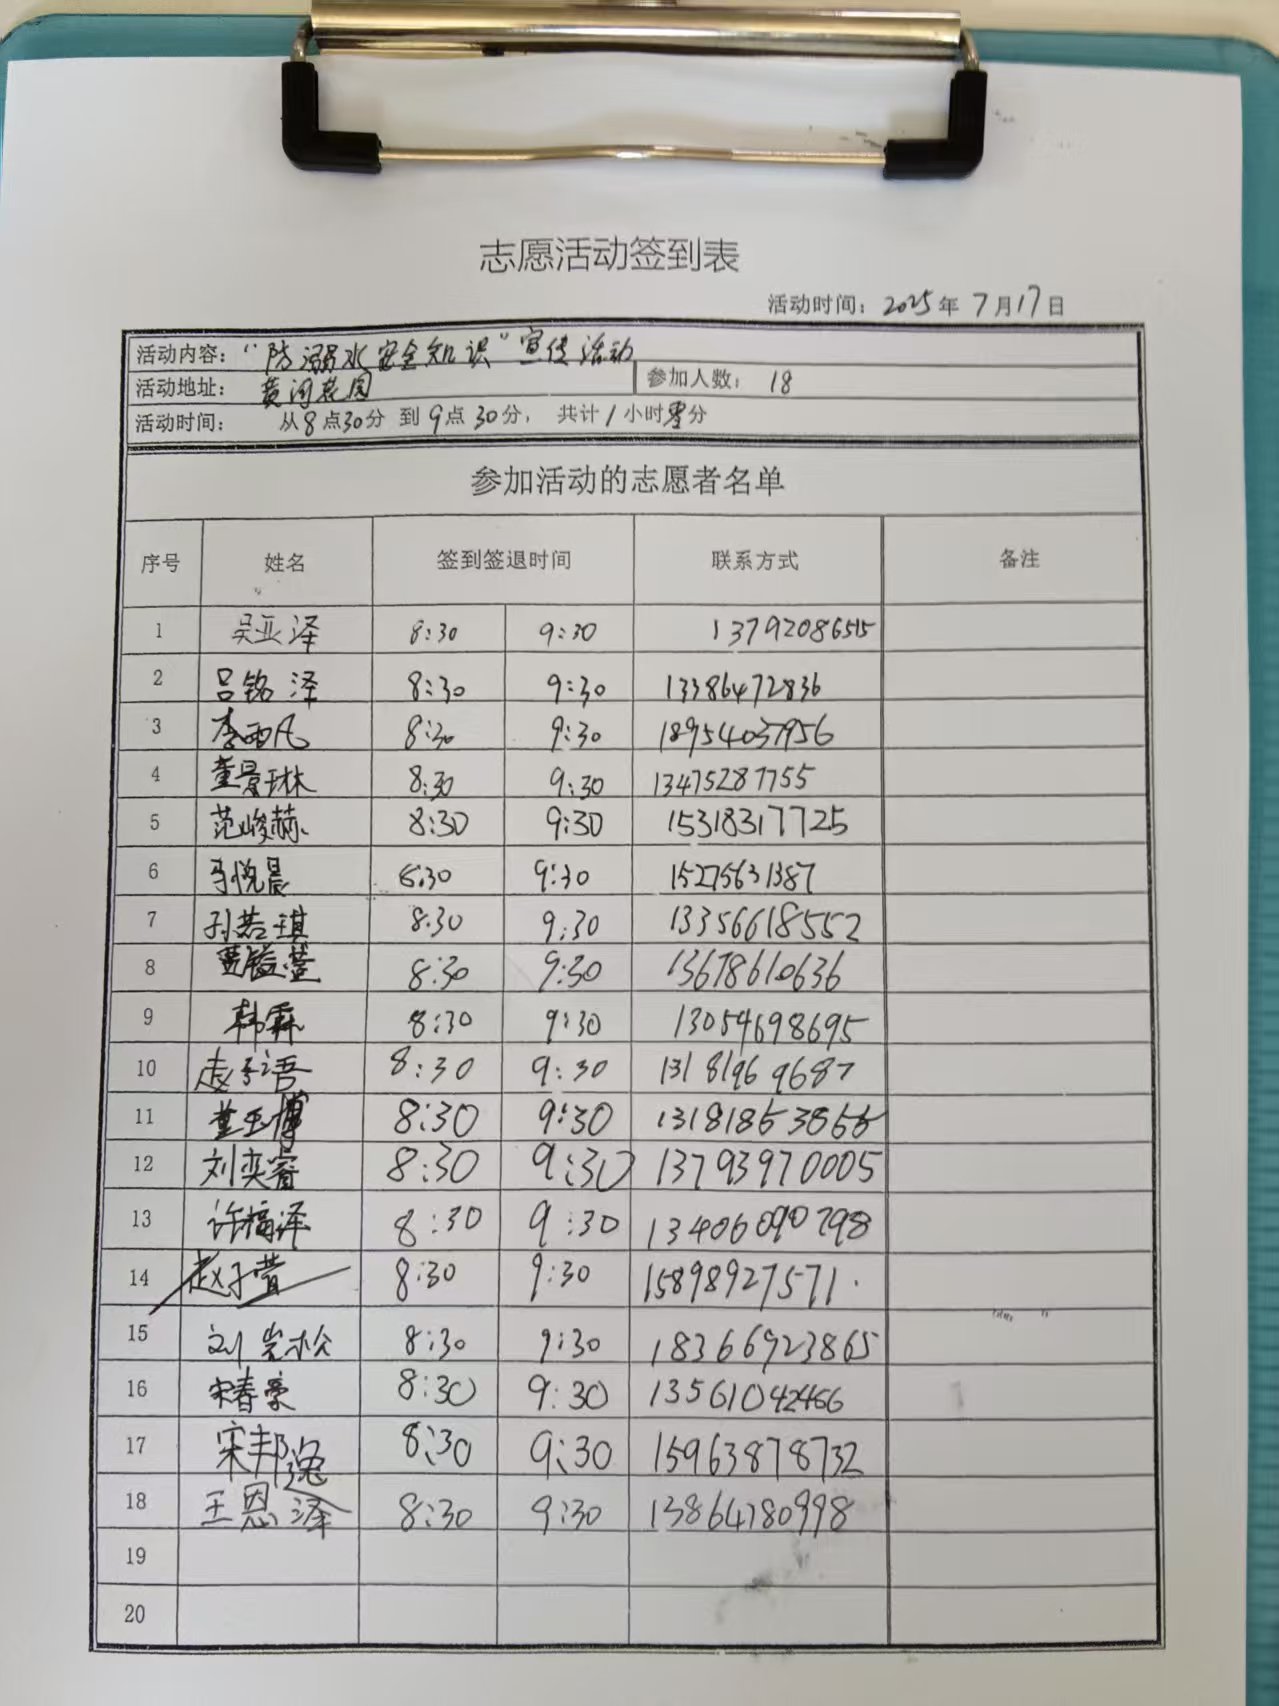 志愿活动签到表
活动时间：2025年7月17日
活动内容：“防溺水安全知识”宣传活动
活动地址：黄河花园 参加人数：18
活动时间：从8点30分到9点30分，共计1小时零分
参加活动的志愿者名单
序号 姓名 签到签退时间 联系方式 备注
1 吴亚泽 8:30 9:30 13792086515
2 吕铭泽 8:30 9:30 13386472836
3 李雨凡 8:30 9:30 18954037956
4 董景琳 8:30 9:30 13475287755
5 范峻赫 8:30 9:30 15318317725
6 马悦晨 8:30 9:30 15275631387
7 孙若琪 8:30 9:30 13356618552
8 8:30 9:30 13678610636
9 韩霖 8:30 9:30 13054698695
10 赵语 8:30 9:30 13181969687
11 董玉博 8:30 9:30
12 刘奕睿 8:30 9:30 13793970005
13 许福泽 8:30 9:30 13406090798
14 赵子萱 8:30 9:30 15898927571
15 刘岩松 8:30 9:30 18366923865
16 宋春豪 8:30 9:30 13561042466
17 宋邦逸 8:30 9:30 15963878732
18 王恩泽 8:30 9:30 13864780998
19
20